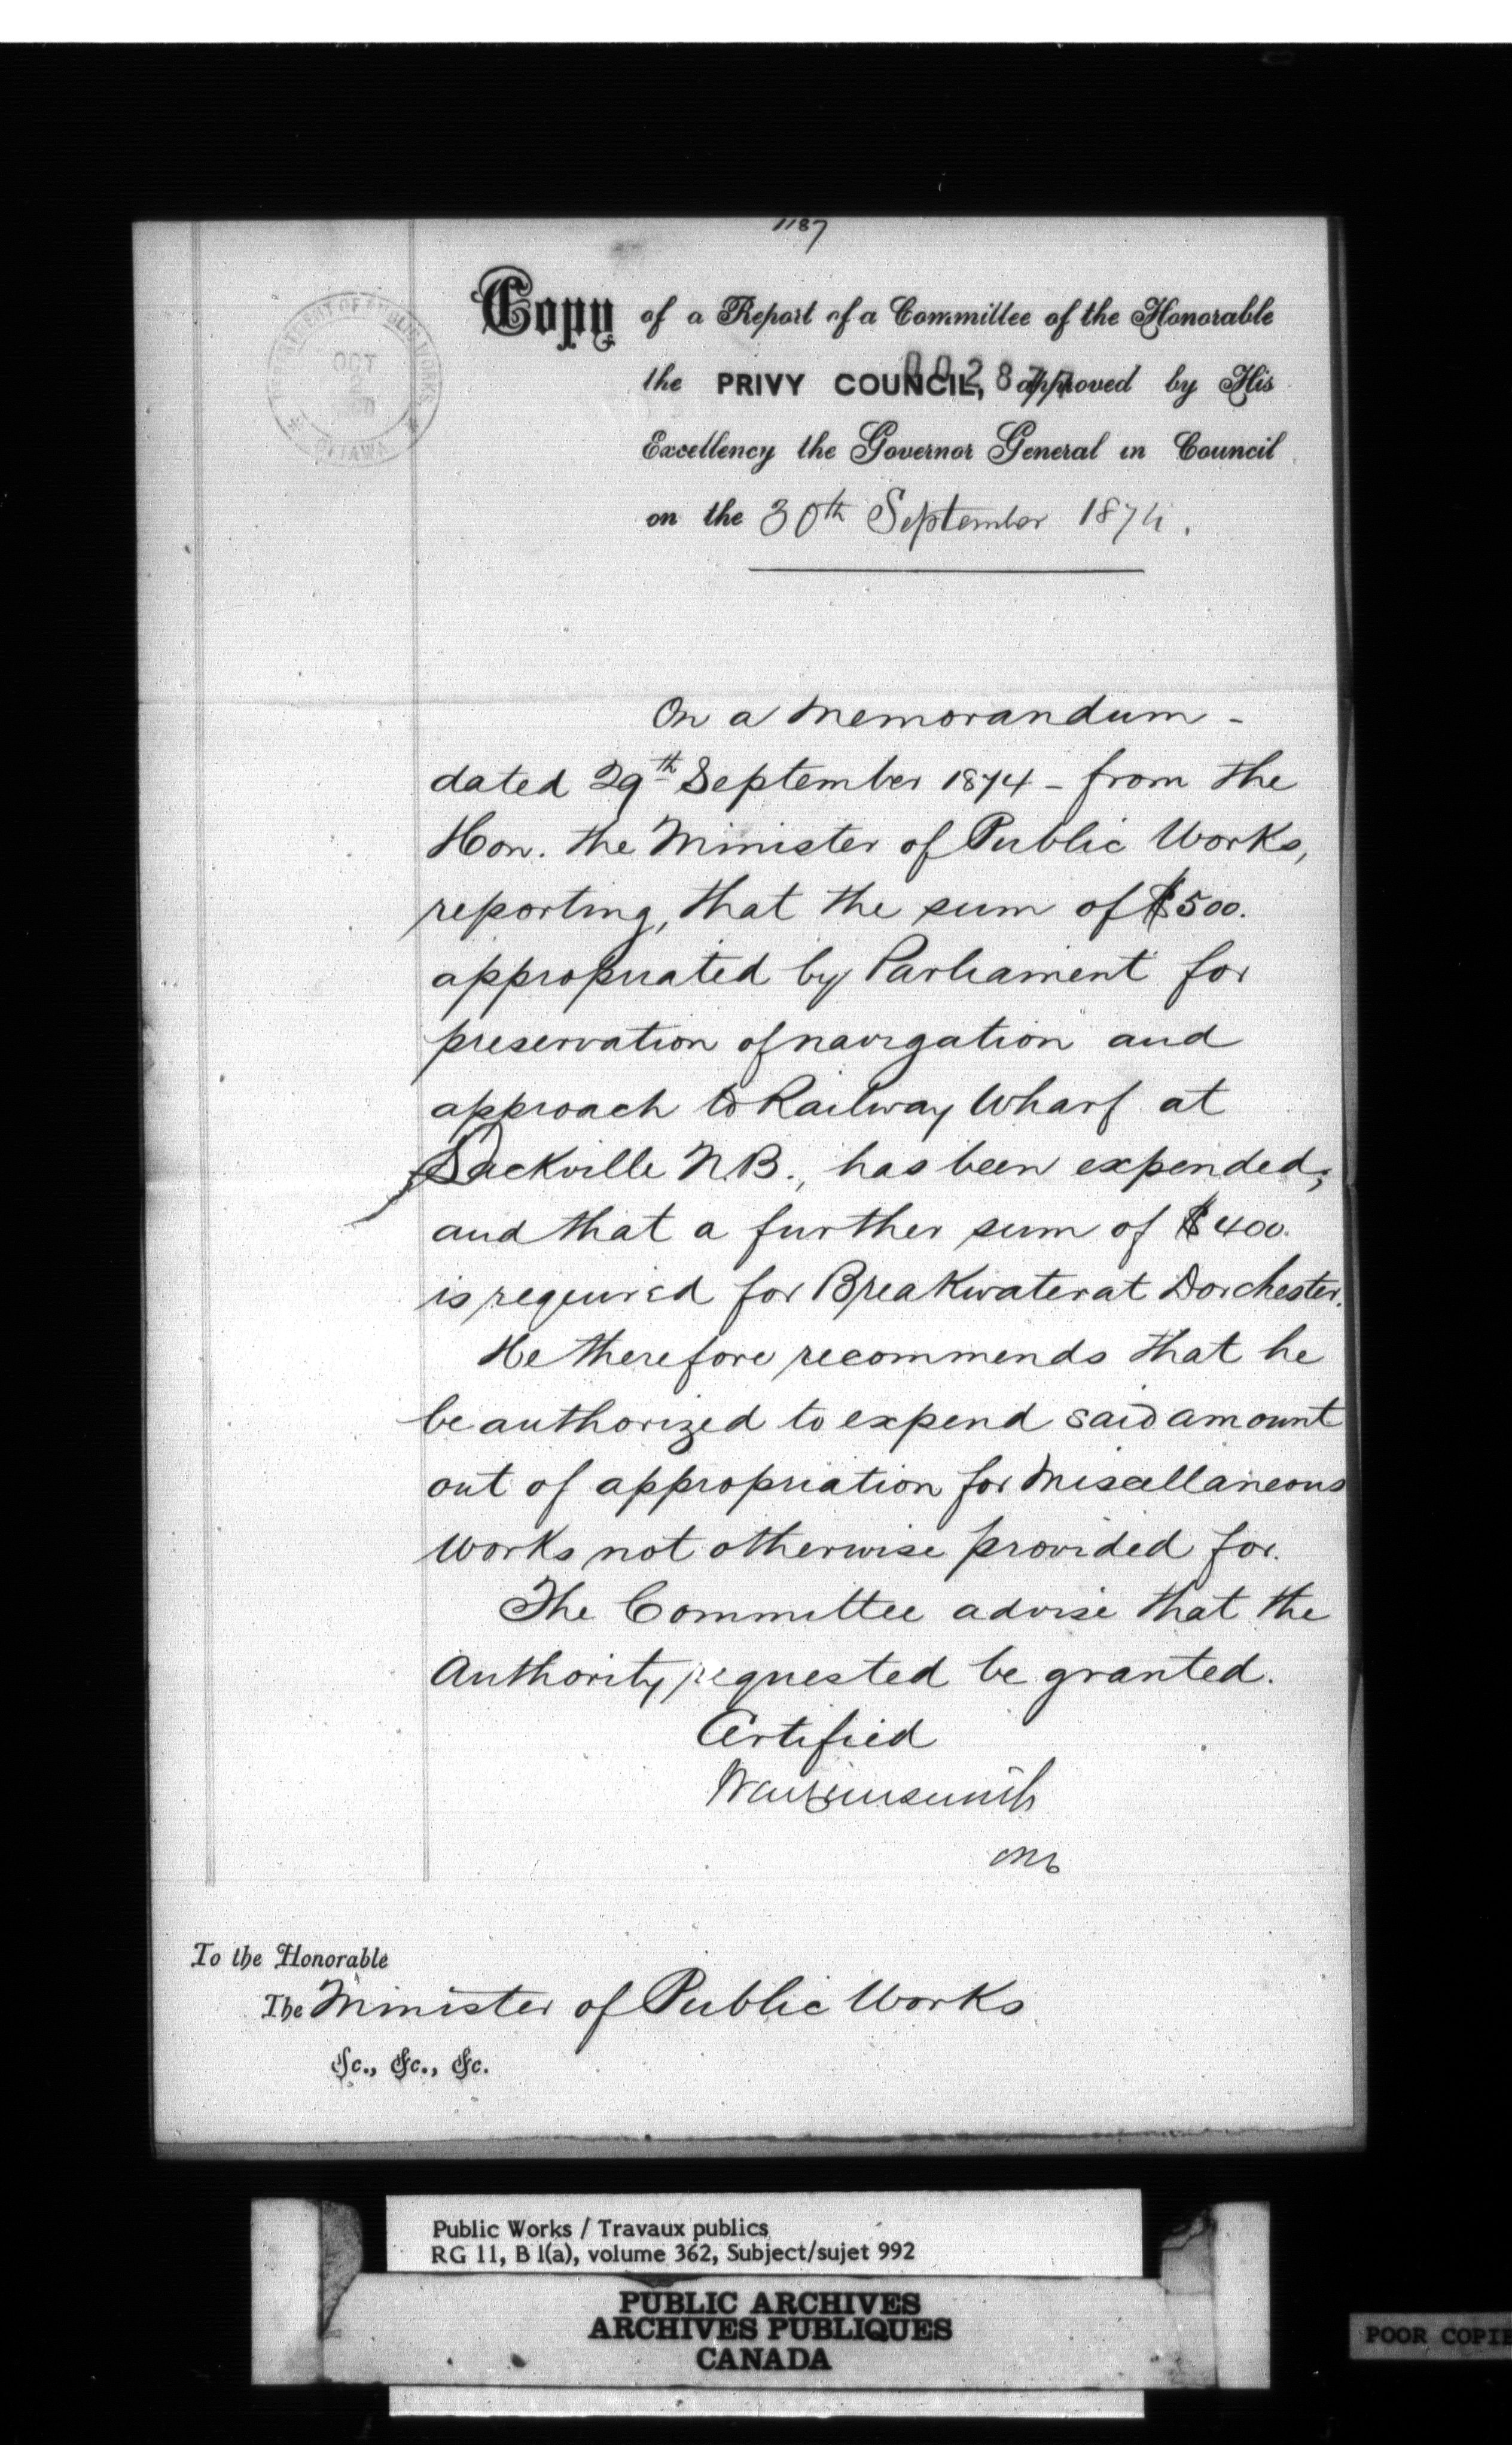 1187
Copy of a Report of a Committee of the Honorable
the PRIVY COUNCIL, approved by His
Excellency the Governor General in Council
on the 30th September 1874.
DEPARTMENT OF PUBLIC WORKS
OCT
2
OTTAWA
On a Memorandum -
dated 29th September 1874 - from the
Hon. the Minister of Public Works,
reporting, that the sum of $500.
appropriated by Parliament for
preservation of navigation and
approach to Railway Wharf at
Sackville N.B., has been expended;
and that a further sum of $400.
is required for Breakwater at Dorchester.
He therefore recommends that he
be authorized to expend said amount
out of appropriation for Miscellaneous
Works not otherwise provided for.
The Committee advise that the
Authority requested be granted.
Certified
To the Honorable
The Minister of Public Works
&c., &c., &c.
Public Works / Travaux publics
RG 11, B 1(a), volume 362, Subject/sujet 992
PUBLIC ARCHIVES
ARCHIVES PUBLIQUES
CANADA
POOR COPIE